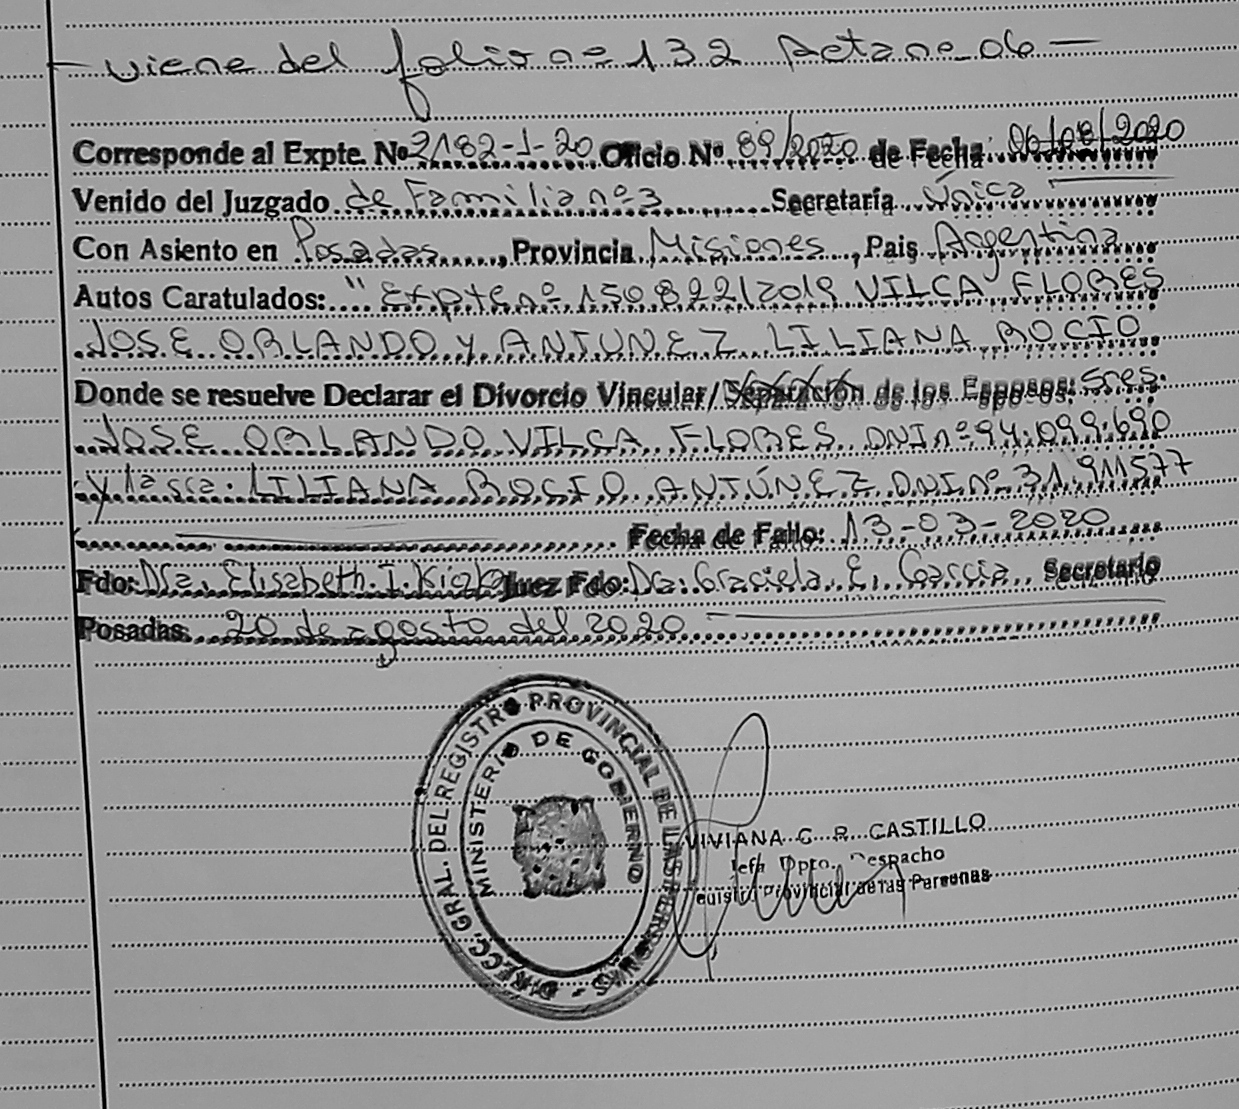 — viene del folio nº 132 Acta nº 06 —
Corresponde al Expte. Nº 2182-1-20 Oficio Nº 89/2020 de Fecha 06/08/2020
Venido del Juzgado de Familia nº 3 Secretaría Única
Con Asiento en Posadas, Provincia Misiones, Pais Argentina
Autos Caratulados: "Expte nº 150822/2019 VILCA FLORES
JOSE ORLANDO Y ANTUNEZ LILIANA ROCIO
Donde se resuelve Declarar el Divorcio Vincular/Separación de los Esposos: Sres.
JOSE ORLANDO VILCA FLORES DNI nº 94.099.690
y la sra. LILIANA ROCIO ANTÚNEZ DNI nº 31.911577
Fecha de Fallo: 13-03-2020
Fdo: Dra. Elisabeth. I. Juez Fdo: Dra. Graciela. E. Garcia Secretario
Posadas, 20 de agosto del 2020
DIRECC. GRAL. DEL REGISTRO PROVINCIAL DE LAS PERSONAS -
MINISTERIO DE GOBIERNO
VIVIANA G. R. CASTILLO
Jefa Dpto. Despacho
Registro Provincial de las Personas